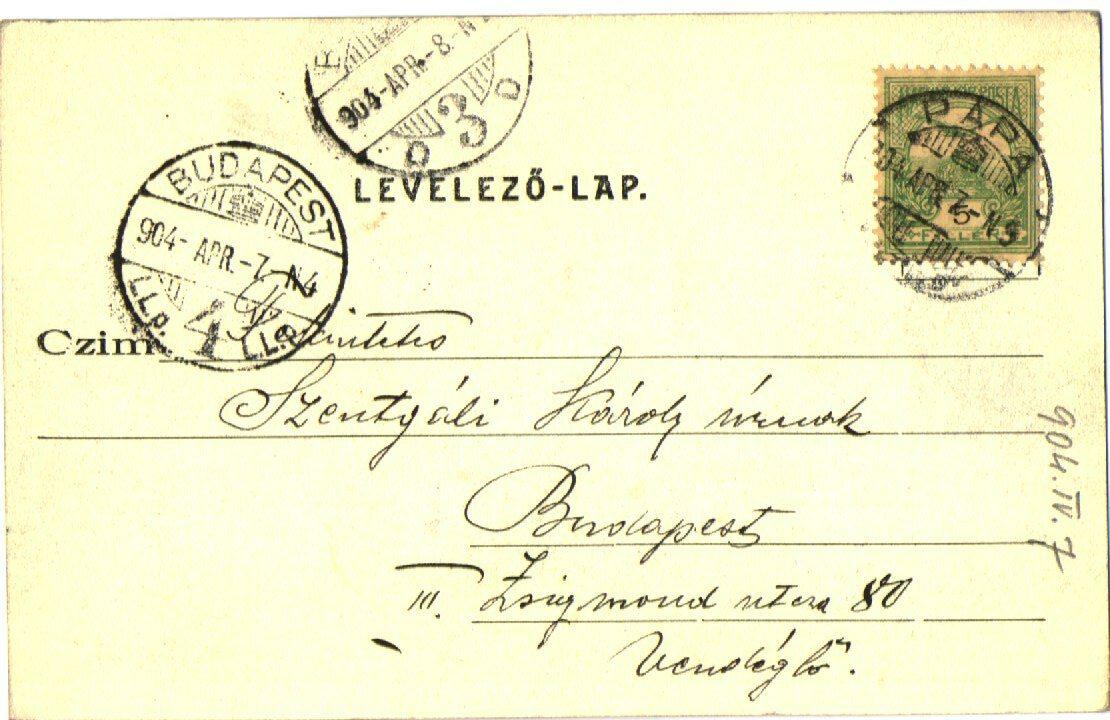 904-APR.-8.-N
3
LEVELEZŐ-LAP.
MAGYAR KIR. POSTA
PÁPA
904 APR. 7. N 3
5
FILLÉR
BUDAPEST
904- APR.-7. N4
I.I.p. 4 I.I.p.
Czim
Szentgáli Károly úrnak
Budapest
III. Zsigmond utcza 80
Vendéglő.
904. IV. 7